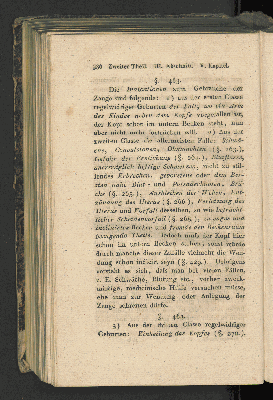 380 Zweiter Theil. III. Abschnitt. V. Kapitel.
§. 483.
Die Indicationen zum Gebrauche der
Zange sind folgende: 1) aus der ersten Classe
regelwidriger Geburten der Fall, wo die Arme
des Kindes neben dem Kopfe vorgefallen ist,
der Kopf schon im untern Becken steht, nun
aber nicht mehr fortrücken will. 2) Aus der
zweiten Classe die allermeisten Fälle: Schwä-
che, Convulsionen, Ohnmachten (§. 263.),
Gefahr der Erstickung (§. 264.), Blutfluss,
unerträglich heftige Schmerzen, nicht zu stil-
lendes Erbrechen, geborstene oder dem Ber-
sten nahe Blut- und Pulsadern, Brü-
che (§. 265.), der Wehen,
zündung des Uterus (§. 266.), Verletzung des
Uterus und Vorfall desselben, so wie beträcht-
licher Scheidenvorfall (§. 266.), zu enges und
inclinirtes Becken und fremde das Becken ver-
engende Theile. Jedoch muss der Kopf hier
schon im untern Becken stehen, sonst würde
durch manche dieser Zufälle vielmehr die Wen-
dung schon indicirt seyn (§. 429.). Uebrigens
versteht es sich, dass man bei vielen Fällen,
z. E. Schwäche, Blutung etc., vorher zweck-
mässige, medicinische Hülfe versuchen müsse,
ehe man zur Wendung oder Anlegung der
Zange schreiten dürfe.
§. 484.
3) Aus der dritten Classe regelwidriger
Geburten: Einkeilung des Kopfes (§. 270.),